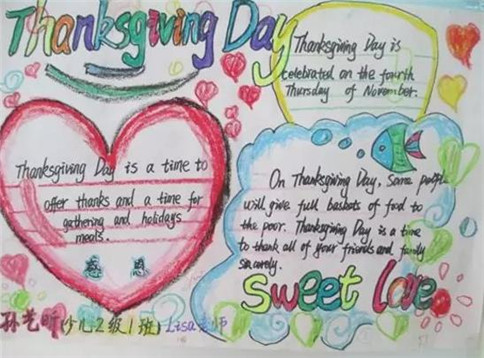 Thanksgiving Day
Thanksgiving Day is
celebrated on the fourth
Thursday of November.
Thanksgiving Day is a time to
offer thanks and a time for
gathering and holidays
meals.
感 恩
On Thanksgiving Day, Some people
will give full baskets of food to
the poor. Thanksgiving Day is a time
to thank all of your friends and family
sincerely.
sweet love
孙艺昕(少儿2级1班) Lisa老师